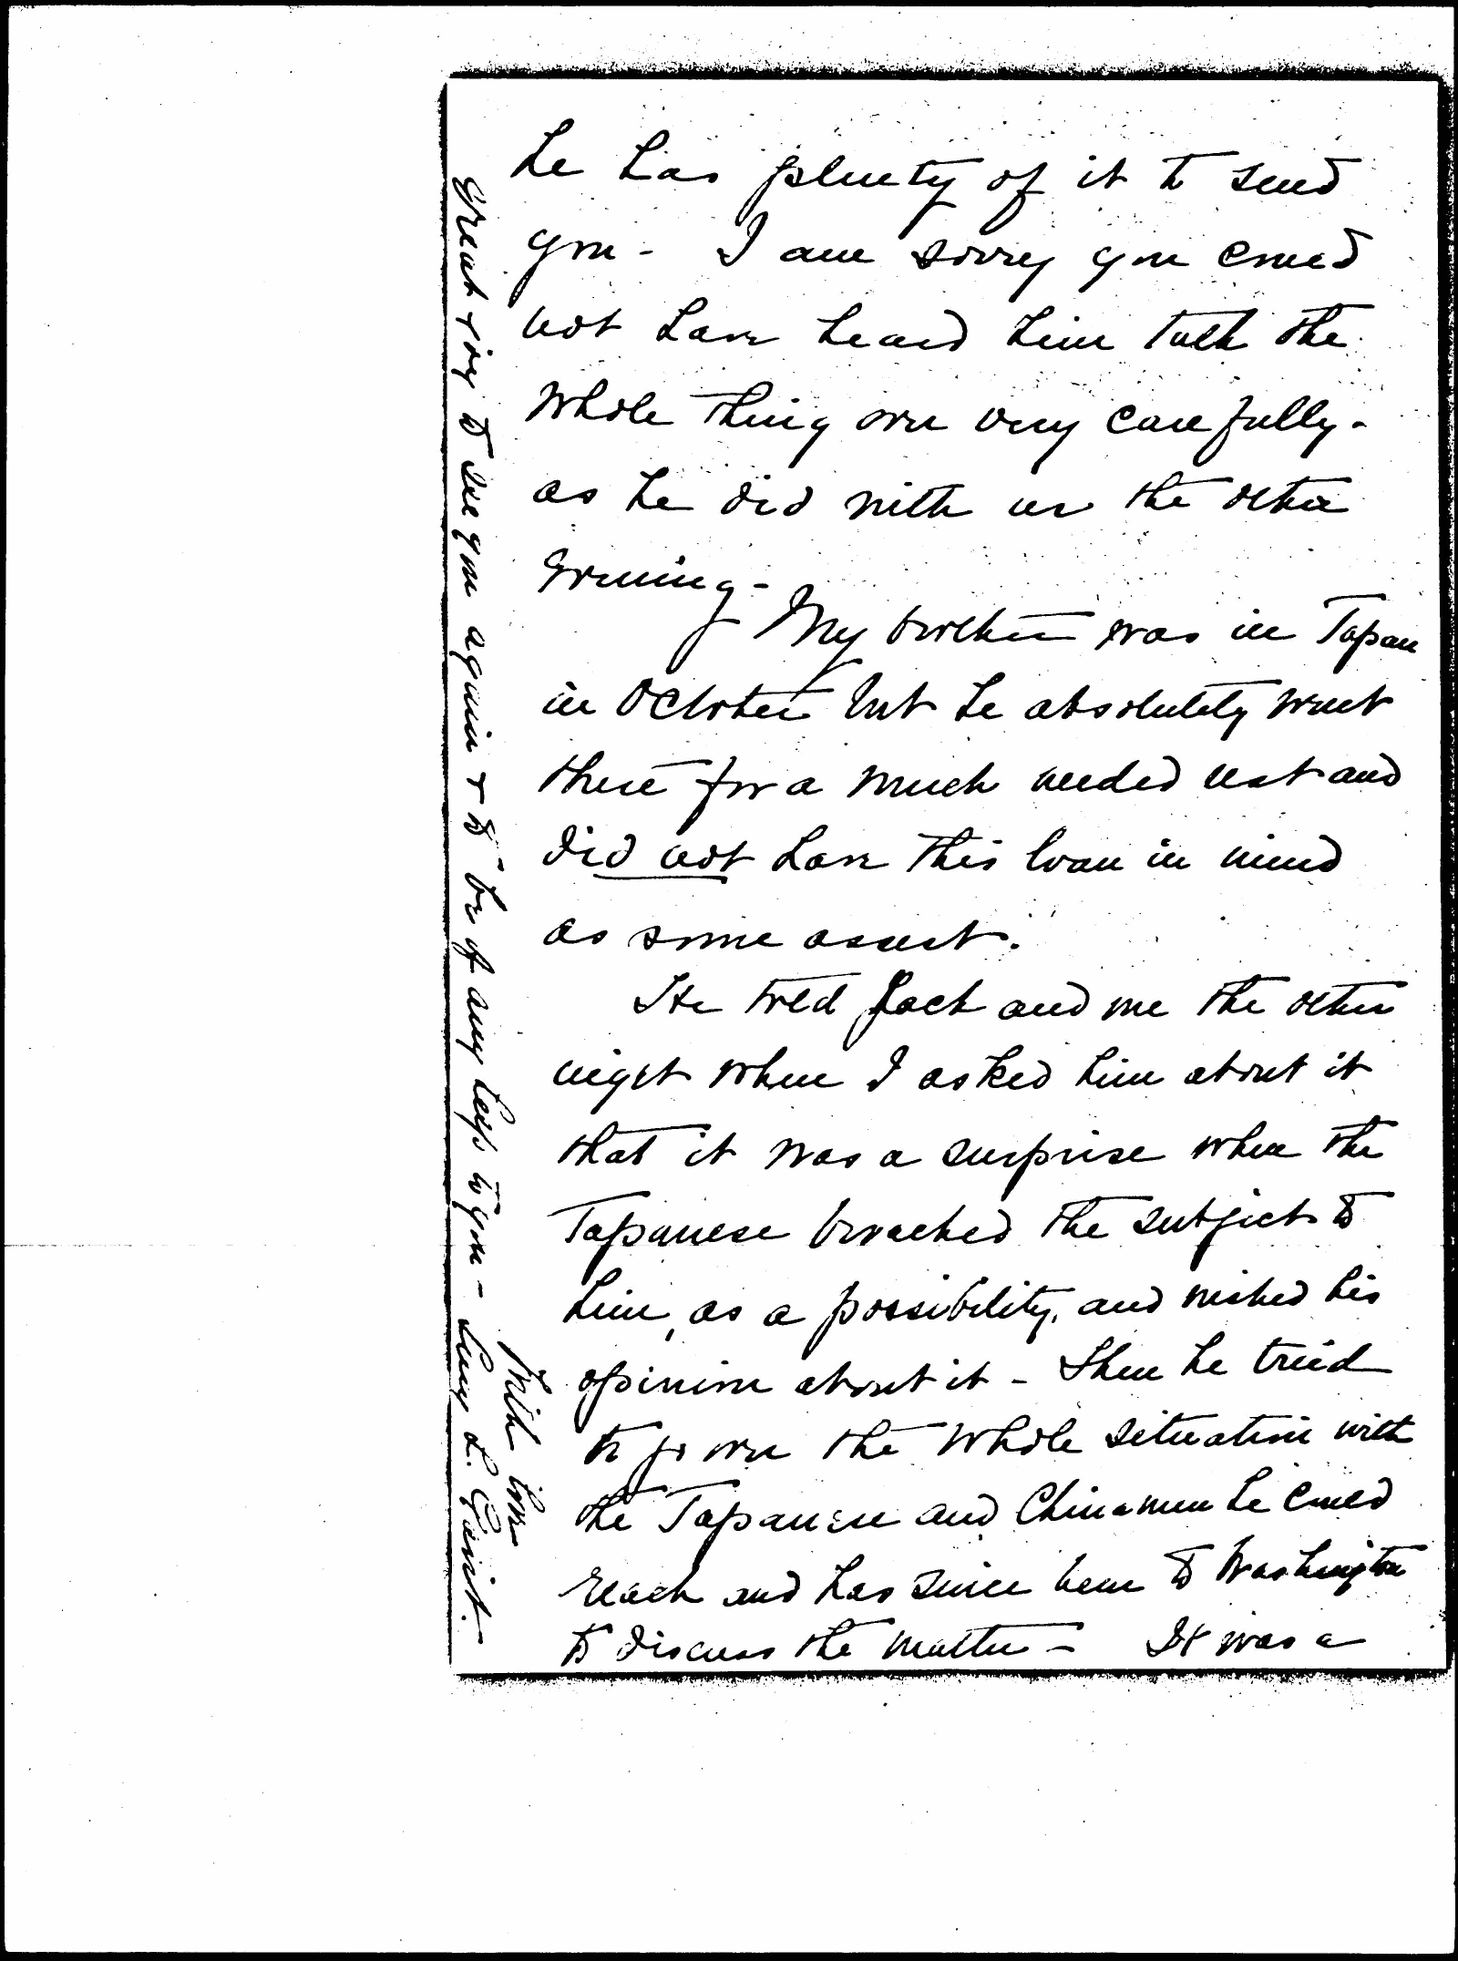 he has plenty of it to send
you - I am sorry you could
not have heard him talk the
whole thing over very carefully -
as he did with us the other
evening -
My brother was in Japan
in October but he absolutely went
there for a much needed rest and
did not have this loan in mind
as some assert.
He told Jack and me the other
night when I asked him about it
that it was a surprise when the
Japanese broached the subject to
him, as a possibility, and wished his
opinion about it - Then he tried
to go over the whole situation with
the Japanese and Chinamen he could
reach and has since been to Washington
to discuss the matter - It was a
great joy to see you again & to be of any help to you -
With love
Lucy L.